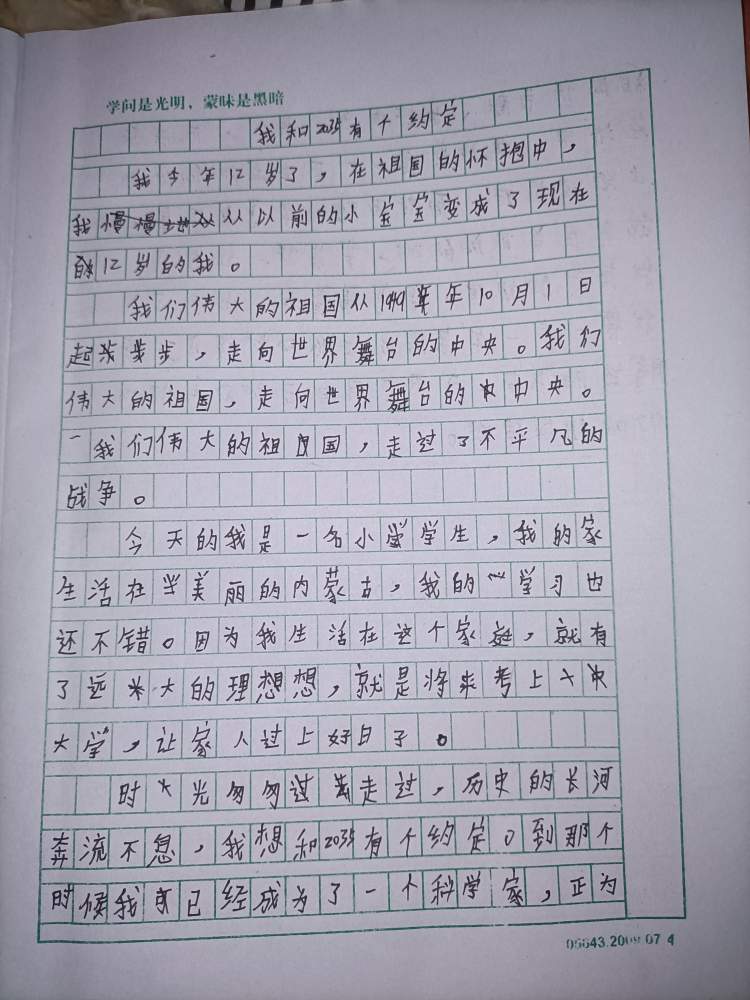 学问是光明，蒙昧是黑暗
我和2035有个约定
我今年12岁了，在祖国的怀抱中，
我慢慢从以前的小宝宝变成了现在
的12岁的我。
我们伟大的祖国从1949年10月1日
起步，走向世界舞台的中央。我们
伟大的祖国，走向世界舞台的中央。
我们伟大的祖国，走过了不平凡的
战争。
今天的我是一名小学生，我的家
生活在美丽的内蒙古，我的学习也
还不错。因为我生活在这个家庭，就有
了远大的理想想，就是将来考上大
大学，让家人过上好日子。
时光匆匆走过，历史的长河
奔流不息，我想和2035有个约定。到那个
时候我已经成为了一个科学家，正为
05643.2009.07 4